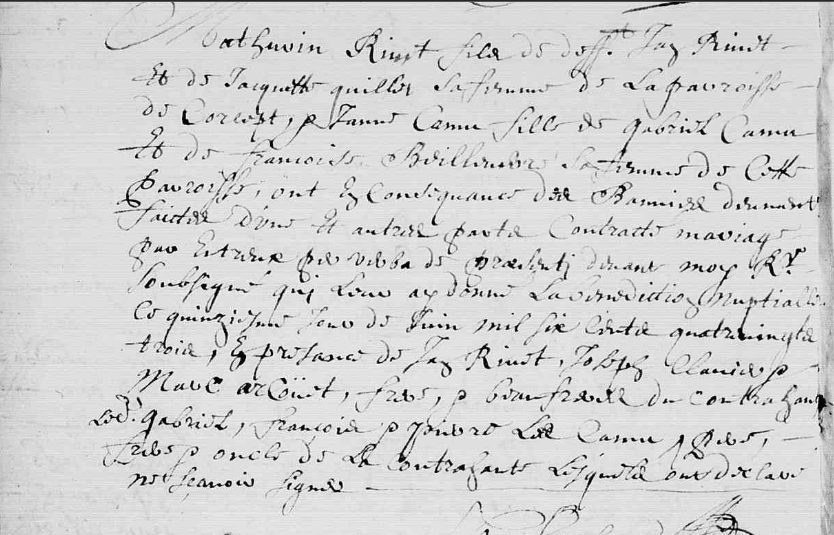 Mathurin Rivet filz de deff.t Jan Rivet
Et de Jacquette quillet sa femme de La parroisse
de Corcept, p Janne Camu fille de gabriel Camu
Et de francoise sa femme de Cette
parroisse, ont En Consequance des Bannies devant
faittes d'une Et autres partz Contracté mariage
par Entreux per verba de præsenti devant moy R.r
Soubsigné qui Leur ay donné La benediction Nuptialle
Ce quinziesme Jour de Juin mil six Centz quatrevingtz
trois, En presance de Jan Rivet, Joseph p
Marc arcoüet, frere, p beaufreres du contrahant
Led. gabriel, francois p pierre Les Camu, pere,
frere p oncle de La Contrahante Lesquelz ont declaré
ne scavoir signer